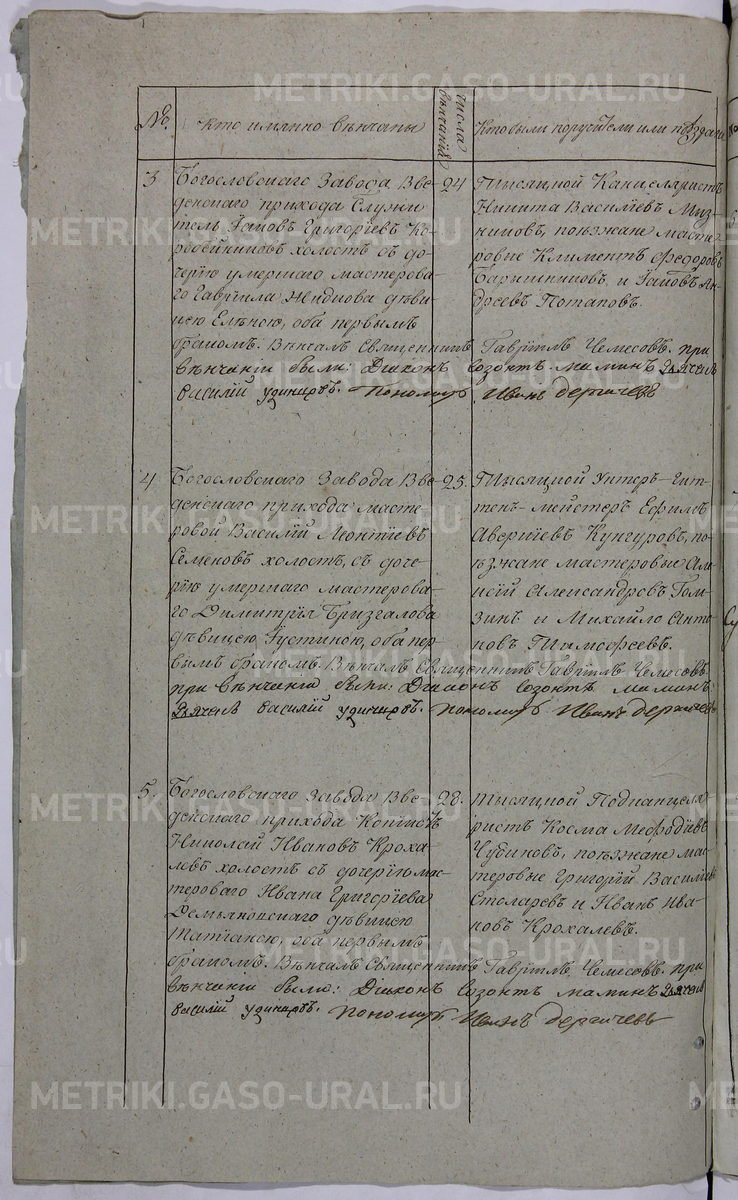 METRIKI.GASO-URAL.RU
№.
кто имянно вѣнчаны
числа вѣнчанія
кто были поручители или поѣзжане
3
Богословскаго Завода Вве-
денскаго прихода Служи
тель Іаковъ Григорьевъ Ко-
робейниковъ холостъ съ до-
черію умершаго мастерова-
го Гавриила Жидкова дѣви-
цею Еленою, оба первымъ
бракомъ. Вѣнчалъ Священникъ Гавріилъ Чемесовъ. при
вѣнчаніи были: Діаконъ Созонтъ Маминъ Дьячекъ
Василій Удинцовъ. Пономарь Иванъ Дергачевъ
24
Тысяцкой Канцеляристъ
Никита Василіевъ
поѣзжане масте
ровые Климентъ Феодоровъ
Барышниковъ и Іаковъ Ан-
дреевъ Потаповъ.
4
Богословскаго Завода Вве-
денскаго прихода масте-
ровой Василій Леонтіевъ
Семеновъ холостъ, съ доче-
рію умершаго мастерова-
го Димитрія Бризгалова
дѣвицею Іустиною, оба пер-
вымъ бракомъ. Вѣнчалъ Священникъ Гавріилъ Чемесовъ.
при вѣнчаніи были: Діаконъ Созонтъ Маминъ
Дьячекъ Василій Удинцовъ. Пономарь Иванъ Дергачевъ
25.
Тысяцкой Унтеръ-Гит-
тен-мейстеръ Ефимъ
Аверкіевъ Кунгуровъ, по-
ѣзжане мастеровые Алек
сій Александровъ
и Михайло Анто
новъ Тимофеевъ.
5.
Богословскаго завода Вве-
денскаго прихода Копіистъ
Николай Ивановъ Кроха-
левъ холостъ съ дочерію мас-
тероваго Ивана Григоріева
Демьяновскаго дѣвицею
Татіаною, оба первымъ
бракомъ. Вѣнчалъ Священникъ Гавріилъ Чемесовъ. при
вѣнчаніи были: Діаконъ Созонтъ Маминъ Дьячекъ
Василій Удинцовъ. Пономарь Иванъ Дергачевъ
28.
Тысяцкой Подканцеля
ристъ Косма Мефодіевъ
Чудиновъ, поѣзжане мас-
теровые Григорій Василіевъ
Столаревъ и Иванъ Ива-
новъ Крохалевъ.